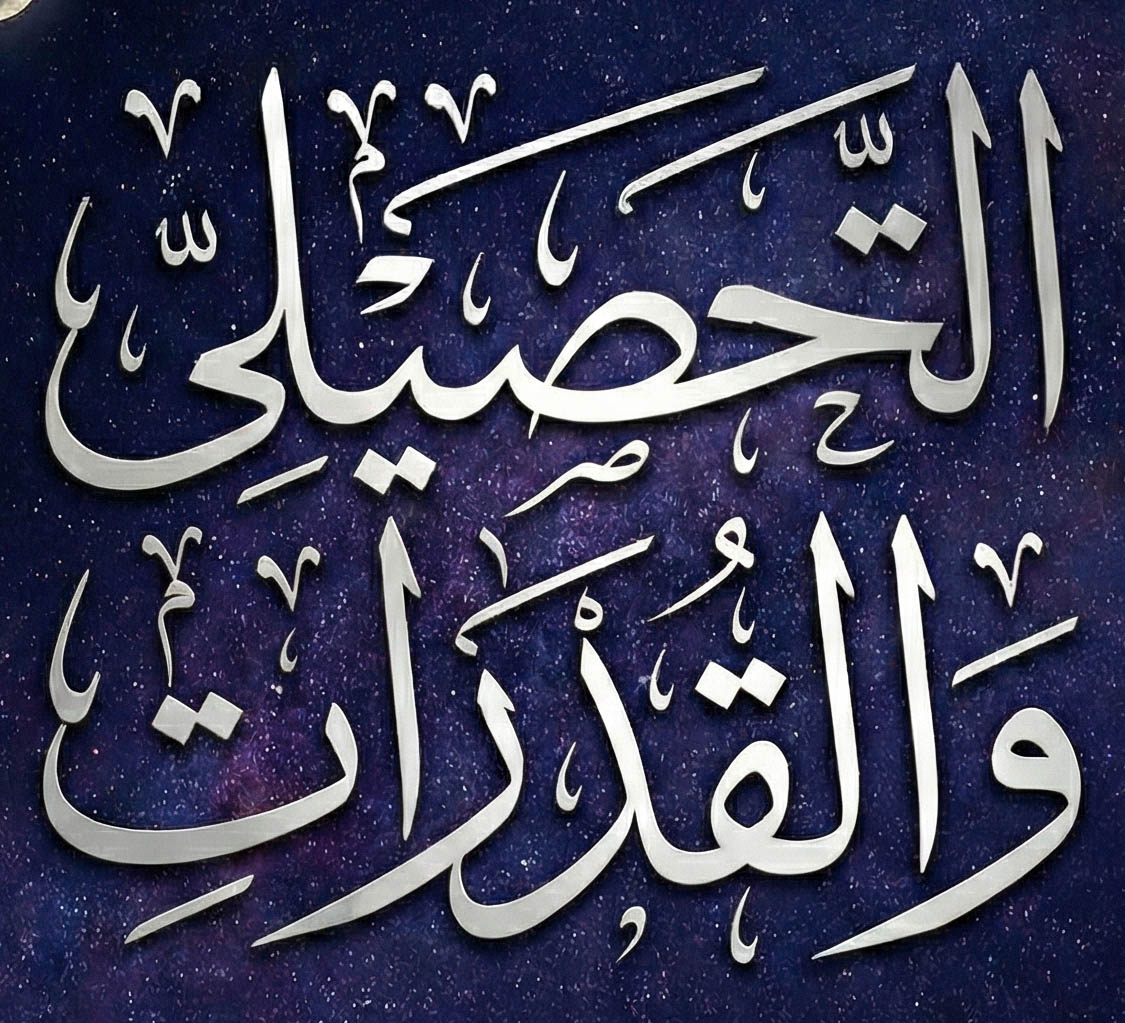 التَّحَصَيْلِيّ
وَالْقُدْرَاتِ